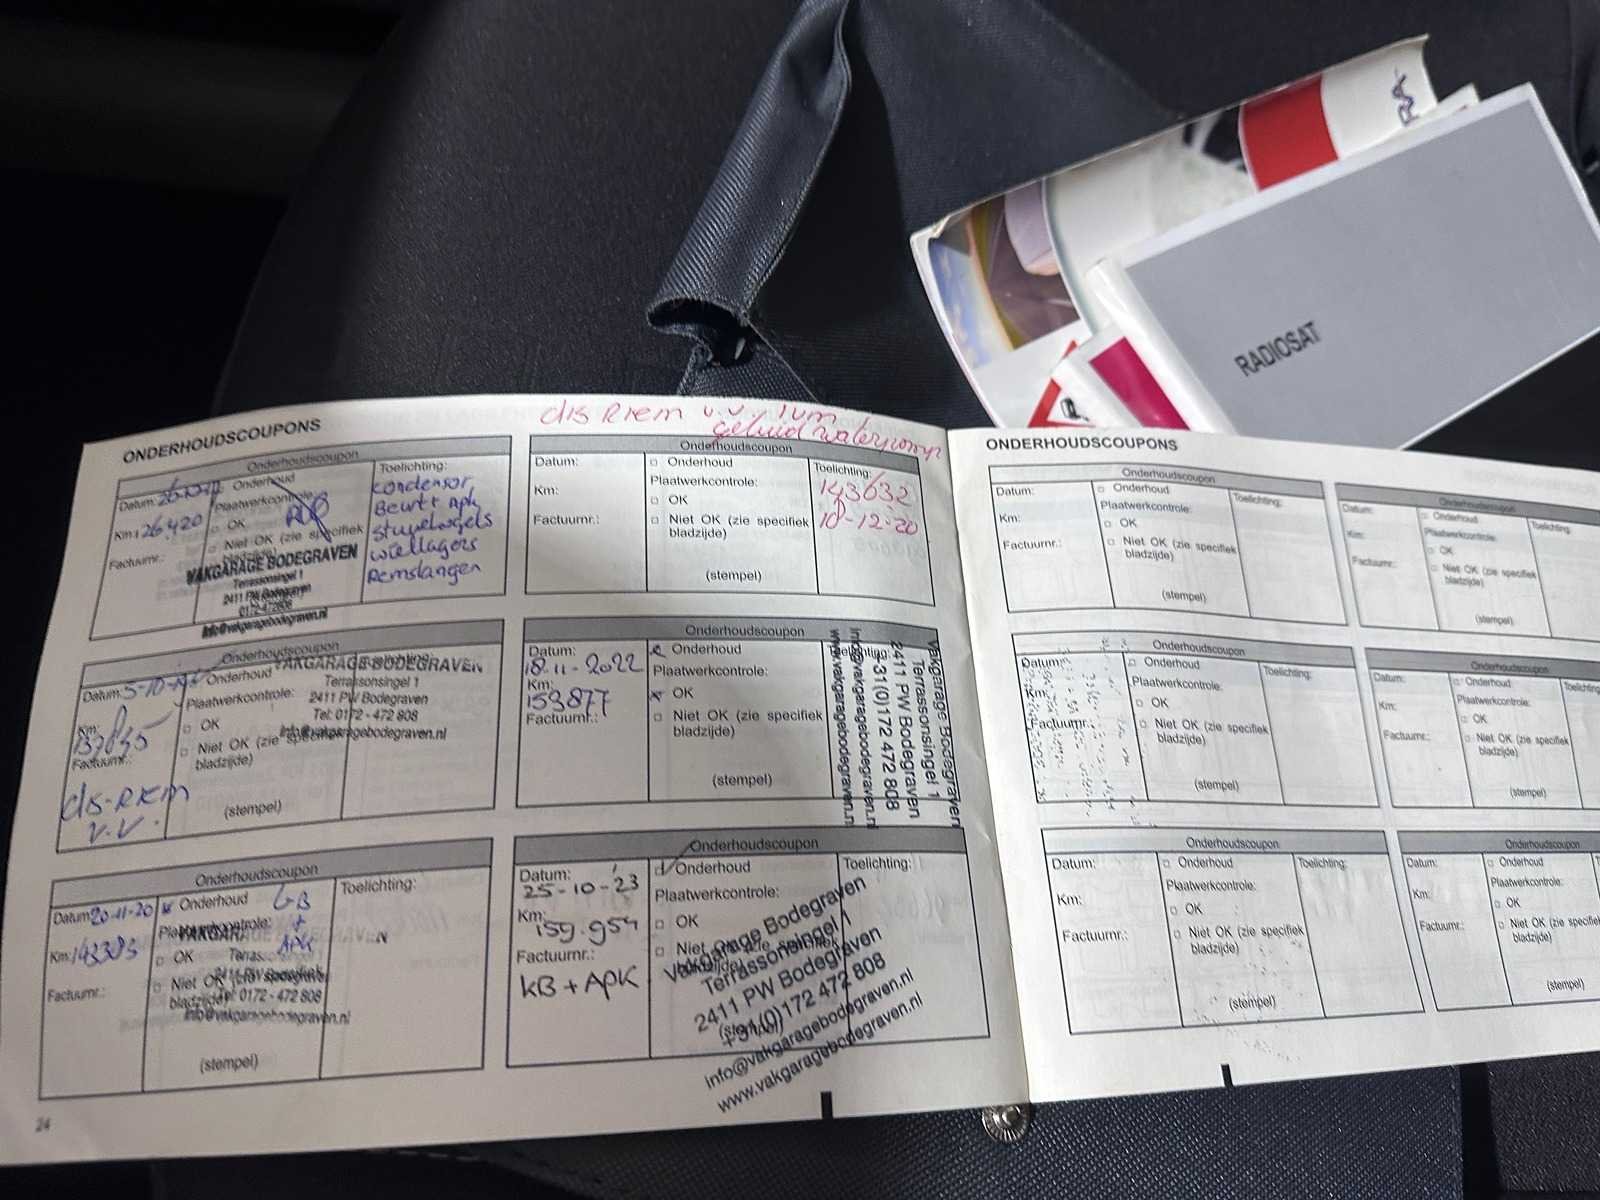 RADIOSAT
ONDERHOUDSCOUPONS
Onderhoudscoupon
Datum:
Km: 126.420
Factuurnr.:
Onderhoud
Plaatwerkcontrole:
OK
Niet OK (zie specifiek
bladzijde)
VAKGARAGE BODEGRAVEN
Terrassonsingel 1
2411 PW Bodegraven
0172-472808
info@vakgaragebodegraven.nl
Toelichting:
condensor,
Beurt + apk
wiellagers
Remslangen
dis Riem v.v. ivm
geluid waterpomp
Onderhoudscoupon
Datum:
Km:
Factuurnr.:
Onderhoud
Plaatwerkcontrole:
OK
Niet OK (zie specifiek
bladzijde)
(stempel)
Toelichting:
143632
10-12-20
Onderhoudscoupon
Datum:
Km:
Factuurnr.:
dis-RIEM
V.V.
Onderhoud
Plaatwerkcontrole:
OK
Niet OK (zie specifiek
bladzijde)
(stempel)
Toelichting:
VAKGARAGE BODEGRAVEN
Terrassonsingel 1
2411 PW Bodegraven
Tel: 0172 - 472 808
info@vakgaragebodegraven.nl
Onderhoudscoupon
Datum:
18-11-2022
Km:
153877
Factuurnr.:
Onderhoud
Plaatwerkcontrole:
OK
Niet OK (zie specifiek
bladzijde)
(stempel)
Toelichting:
Vakgarage Bodegraven
Terrassonsingel 1
2411 PW Bodegraven
+31(0)172 472 808
info@vakgaragebodegraven.nl
www.vakgaragebodegraven.nl
Onderhoudscoupon
Datum: 20-11-20
Km: 143383
Factuurnr.:
Onderhoud GB
Plaatwerkcontrole: +
OK APK
Niet OK (zie specifiek
bladzijde)
(stempel)
Toelichting:
Tel: 0172 - 472 808
info@vakgaragebodegraven.nl
Onderhoudscoupon
Datum:
25-10-23
Km:
159.954
Factuurnr.:
KB + APK
Onderhoud
Plaatwerkcontrole:
OK
Niet OK (zie specifiek
bladzijde)
(stempel)
Toelichting:
Vakgarage Bodegraven
Terrassonsingel 1
2411 PW Bodegraven
+31(0)172 472 808
info@vakgaragebodegraven.nl
www.vakgaragebodegraven.nl
24
ONDERHOUDSCOUPONS
Onderhoudscoupon
Datum:
Km:
Factuurnr.:
Onderhoud
Plaatwerkcontrole:
OK
Niet OK (zie specifiek
bladzijde)
(stempel)
Toelichting:
Onderhoudscoupon
Datum:
Km:
Factuurnr.:
Onderhoud
Plaatwerkcontrole:
OK
Niet OK (zie specifiek
bladzijde)
(stempel)
Toelichting:
Onderhoudscoupon
Datum:
Km:
Factuurnr.:
Onderhoud
Plaatwerkcontrole:
OK
Niet OK (zie specifiek
bladzijde)
(stempel)
Toelichting:
Onderhoudscoupon
Datum:
Km:
Factuurnr.:
Onderhoud
Plaatwerkcontrole:
OK
Niet OK (zie specifiek
bladzijde)
(stempel)
Toelichting:
Onderhoudscoupon
Datum:
Km:
Factuurnr.:
Onderhoud
Plaatwerkcontrole:
OK
Niet OK (zie specifiek
bladzijde)
(stempel)
Toelichting:
Onderhoudscoupon
Datum:
Km:
Factuurnr.:
Onderhoud
Plaatwerkcontrole:
OK
Niet OK (zie specifiek
bladzijde)
(stempel)